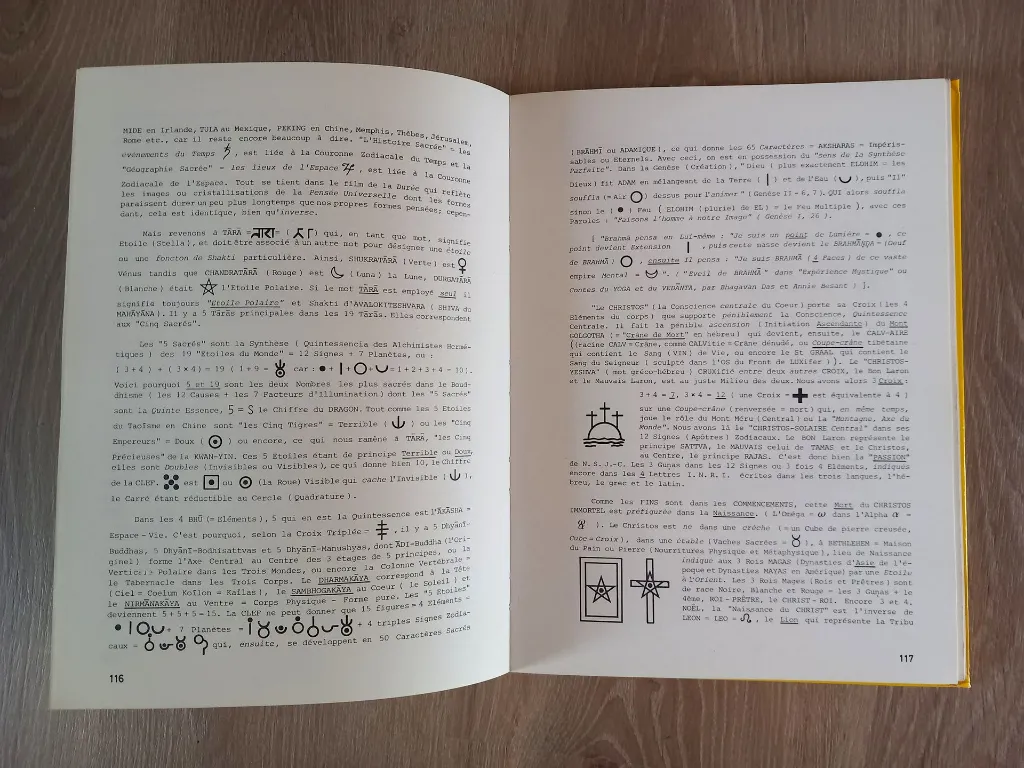 MIDE en Irlande, TULA au Mexique, PEKING en Chine, Memphis, Thèbes, Jérusalem,
Rome etc., car il reste encore beaucoup à dire. "L'Histoire Sacrée" = les
événements du Temps , est liée à la Couronne Zodiacale du Temps et la
"Géographie Sacrée" = les lieux de l'Espace , est liée à la Couronne
Zodiacale de l'Espace. Tout se tient dans le film de la Durée qui reflète
les images ou cristallisations de la Pensée Universelle dont les formes
paraissent durer un peu plus longtemps que nos propres formes pensées; cepen-
dant, cela est identique, bien qu'inverse.
Mais revenons à TĀRĀ = तारा = ( ) qui, en tant que mot, signifie
Etoile (Stella), et doit être associé à un autre mot pour désigner une étoile
ou une fonction de Shakti particulière. Ainsi, SHUKRATĀRĀ (Verte) est ♀
Vénus tandis que CHANDRATĀRĀ (Rouge) est ☾ (Luna) la Lune, DURGATĀRĀ
(Blanche) était l'Etoile Polaire. Si le mot TĀRĀ est employé seul il
signifie toujours "Etoile Polaire" et Shakti d'AVALOKITESHVARA ( SHIVA du
MAHĀYĀNA). Il y a 5 Tārās principales dans les 19 Tārās. Elles correspondent
aux "Cinq Sacrés".
Les "5 Sacrés" sont la Synthèse ( Quintessencia des Alchimistes Hermé-
tiques) des 19 "Etoiles du Monde" = 12 Signes + 7 Planètes, ou :
( 3+4 ) + ( 3×4 ) = 19 ( 1+9 = car : ● + | + ○ + ◡ = 1+2+3+4 = 10).
Voici pourquoi 5 et 19 sont les deux Nombres les plus sacrés dans le Boud-
dhisme ( les 12 Causes + les 7 Facteurs d'Illumination) dont les "5 Sacrés"
sont la Quinte Essence, 5 = S le Chiffre du DRAGON. Tout comme les 5 Etoiles
du Taoïsme en Chine sont "les Cinq Tigres" = Terrible ( ) ou les "Cinq
Empereurs" = Doux ( ☉ ) ou encore, ce qui nous ramène à TĀRĀ, "les Cinq
Précieuses" de la KWAN-YIN. Ces 5 Etoiles étant de principe Terrible ou Doux,
elles sont Doubles (Invisibles ou Visibles), ce qui donne bien 10, le Chiffre
de la CLEF. est ou ☉ (la Roue) Visible qui cache l'Invisible ( ),
le Carré étant réductible au Cercle ( Quadrature ).
Dans les 4 BHŪ (= Eléments), 5 qui en est la Quintessence est l'ĀKĀSHA =
Espace - Vie. C'est pourquoi, selon la Croix Triplée = , il y a 5 Dhyānī-
Buddhas, 5 Dhyānī-Bodhisattvas et 5 Dhyānī-Manushyas, dont ĀDI-Buddha (l'Ori-
ginel) forme l'Axe Central au Centre des 3 étages de 5 principes, ou la
Verticale Polaire dans les Trois Mondes, ou encore la Colonne Vertébrale =
le Tabernacle dans les Trois Corps. Le DHARMAKĀYA correspond à la Tête
(Ciel = Coelum Koilon = Kailas), le SAMBHOGAKĀYA au Coeur ( le Soleil ) et
le NIRMĀNAKĀYA au Ventre = Corps Physique - Forme pure. Les "5 Etoiles"
deviennent 5+5+5 = 15. La CLEF ne peut donner que 15 figures = 4 Eléments =
● | ○ ◡ + 7 Planètes = + 4 triples Signes Zodia-
caux = qui, ensuite, se développent en 50 Caractères Sacrés
116
( BRĀHMĪ ou ADAMIQUE ), ce qui donne les 65 Caractères = AKSHARAS = Impéris-
sables ou Eternels. Avec ceci, on est en possession du "sens de la Synthèse
Parfaite". Dans la Genèse (Création), "Dieu ( plus exactement ELOHIM = les
Dieux) fit ADAM en mélangeant de la Terre ( | ) et de l'Eau ( ◡ ), puis "Il"
souffla (= Air ○ ) dessus pour l'animer" ( Genèse II - 6, 7 ). QUI alors souffla
sinon le ( ● ) Feu ( ELOHIM (pluriel de EL) = le Feu Multiple ), avec ces
Paroles : "Faisons l'homme à notre Image" ( Genèse I, 26 ).
[ "Brahmâ pensa en Lui-même : "Je suis un point de Lumière = ● , ce
point devient Extension | , puis cette masse devient le BRAHMĀṆḌA = (Oeuf
de BRAHMĀ) ○ , ensuite Il pensa : "Je suis BRAHMĀ ( 4 Faces ) de ce vaste
empire Mental = ". ( "Eveil de BRAHMĀ" dans "Expérience Mystique" ou
Contes du YOGA et du VEDĀNTA, par Bhagavan Das et Annie Besant ) ].
"Le CHRISTOS" (la Conscience centrale du Coeur) porte sa Croix ( les 4
Eléments du corps) que supporte péniblement la Conscience, Quintessence
Centrale. Il fait la pénible ascension ( Initiation Ascendante ) du Mont
GOLGOTHA ( = "Crâne de Mort" en hébreu ) qui devient, ensuite, le CALV-AIRE
((racine CALV = Crâne, comme CALVitie = Crâne dénudé, ou Coupe-crâne tibétaine
qui contient le Sang ( VIN ) de Vie, ou encore le St GRAAL qui contient le
Sang du Seigneur ( sculpté dans l'OS du Front de LUXifer ) ). Le "CHRISTOS-
YESHVA" ( mot gréco-hébreu ) CRUXIFIÉ entre deux autres CROIX, le Bon Laron
et le Mauvais Laron, est au juste Milieu des deux. Nous avons alors 3 Croix :
3+4 = 7, 3×4 = 12 ( une Croix = ✚ est équivalente à 4 )
sur une Coupe-crâne (renversée = mort) qui, en même temps,
joue le rôle du Mont Méru (Central) ou la "Montagne, Axe du
Monde". Nous avons là le "CHRISTOS-SOLAIRE Central" dans ses
12 Signes ( Apôtres ) Zodiacaux. Le BON Laron représente le
principe SATTVA, le MAUVAIS celui de TAMAS et le Christos,
au Centre, le principe RAJAS. C'est donc bien la "PASSION"
de N.S.J.-C. Les 3 Gunas dans les 12 Signes ou 3 fois 4 Eléments, indiqués
encore dans les 4 Lettres I.N.R.I. écrites dans les trois langues, l'hé-
breu, le grec et le latin.
Comme les FINS sont dans les COMMENCEMENTS, cette Mort du CHRISTOS
IMMORTEL est préfigurée dans la Naissance. ( L'Oméga = ω dans l'Alpha α =
). Le Christos est né dans une crèche ( = un Cube de pierre creusée,
Cube = Croix ), dans une étable (Vaches Sacrées = ♉ ), à BETHLEHEM = Maison
du Pain ou Pierre ( Nourritures Physique et Métaphysique ), lieu de Naissance
indiqué aux 3 Rois MAGAS (Dynasties d'Asie de l'é-
poque et Dynasties MAYAS en Amérique) par une Etoile
à l'Orient. Les 3 Rois Mages (Rois et Prêtres) sont
de race Noire, Blanche et Rouge = les 3 Gunas + le
4ème, ROI - PRÊTRE, le CHRIST-ROI. Encore 3 et 4.
NOËL, la "Naissance du CHRIST" est l'inverse de
LEON = LEO = ♌ , le Lion qui représente la Tribu
117